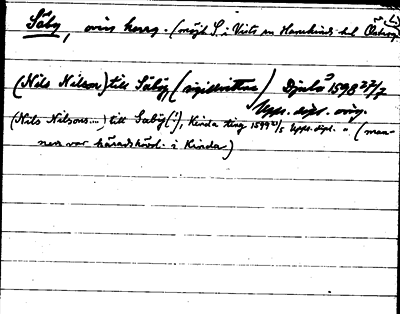 Säby, ovis herrg. (möjl. S. i Vists sn Hanekinds hd Östergötl.)
(Nils Nilson) till Säby, (sigillvittne) Djulö 1598 27/7
Upps. dipl. orig.
(Nils Nilsons...) till Saby (!), Kinda ting 1599 21/5 Upps. dipl. " (man-
nen var häradshövd. i Kinda)